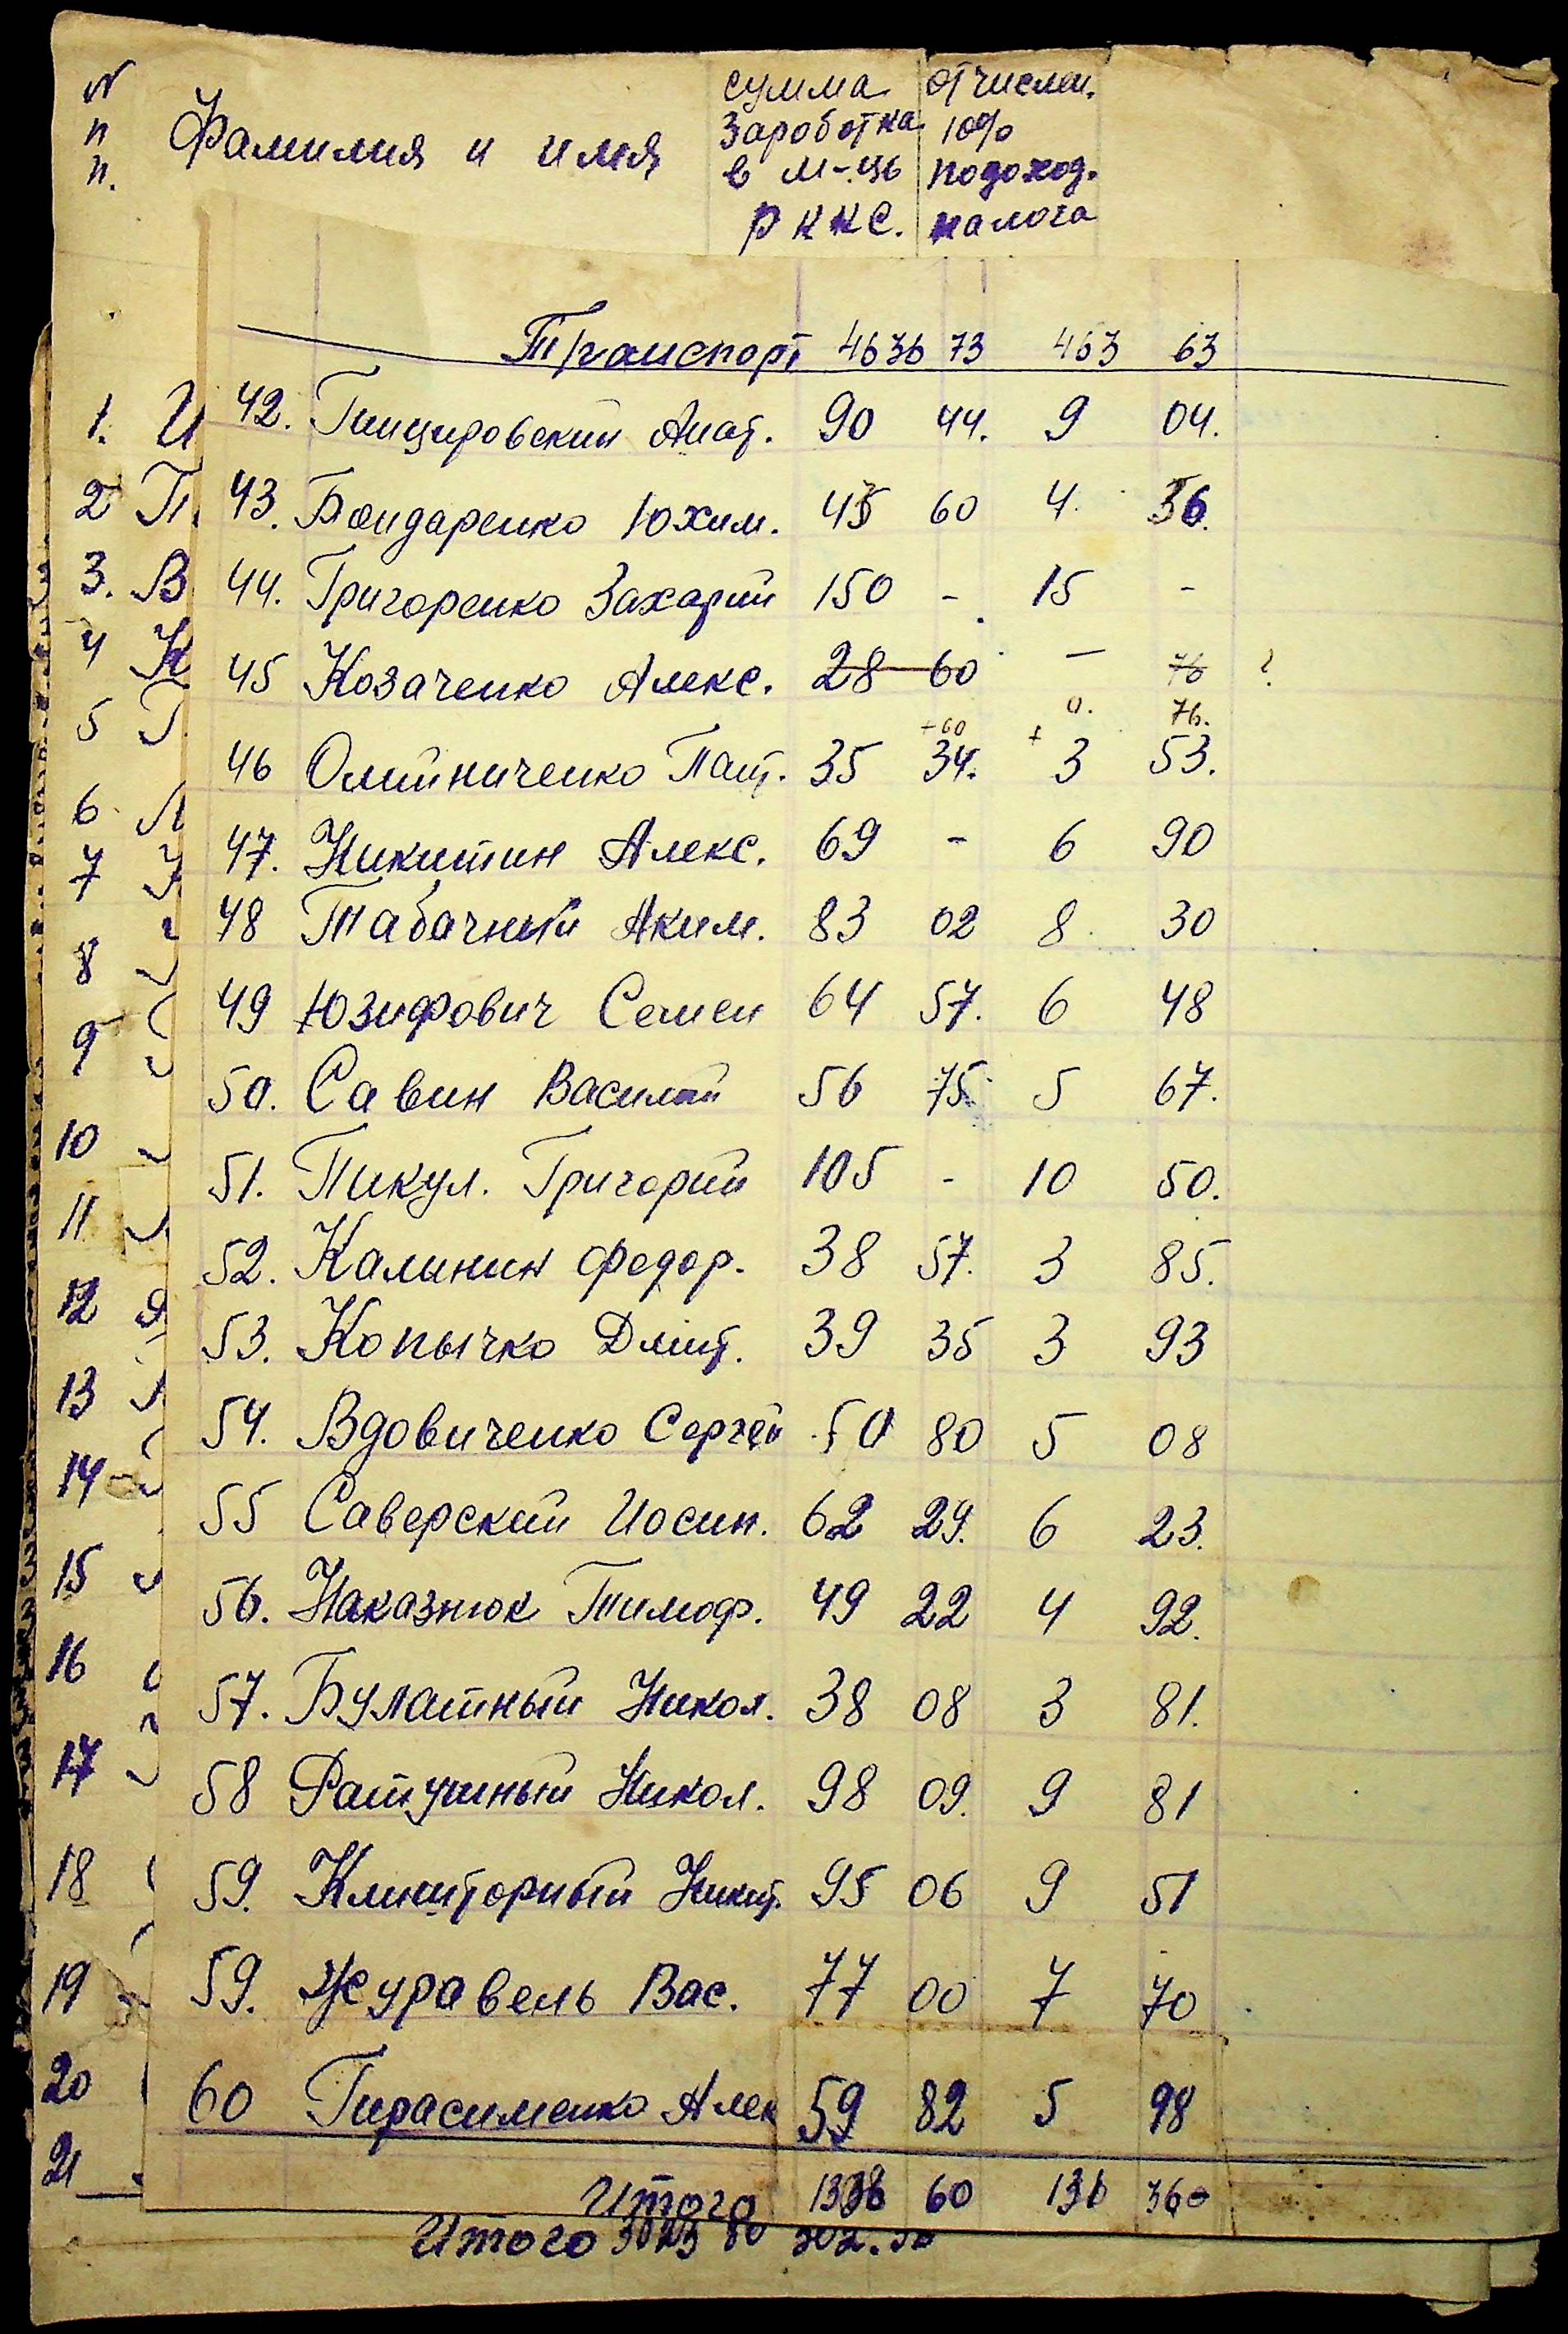 N п п. Фамилия и имя
сумма заработка в м-ць РККС.
отчислен. 10% подоход. налога
Транспорт 4636 73 463 63
42. Гинцировский Анат. 90 44. 9 04.
43. Бондаренко Юхим. 45 60 4. 56.
44. Григоренко Захарий 150 - 15 -
45 Козаченко Алекс. 28 60 — 76 ?
+60 0. 76.
46 Олийниченко Пат. 35 34. + 3 53.
47. Никитин Алекс. 69 - 6 90
48 Табачный Аким. 83 02 8. 30
49 Юзифович Семен 64 57. 6 48
50. Савин Василий 56 75. 5 67.
51. Пикул. Григорий 105 - 10 50.
52. Калинин Федор. 38 57. 3 85.
53. Копычко Дмит. 39 35 3 93
54. Вдовиченко Сергей 50 80 5 08
55 Саверский Иосип. 62 29. 6 23.
56. Наказнюк Тимоф. 49 22 4 92.
57. Булатный Никол. 38 08 3 81.
58 Ратушный Никол. 98 09. 9 81
59. Клиторный Никит. 95 06 9 51
59. Журавель Вас. 77 00 7 70
60 Гирасименко Алек 59 82 5 98
Итого 1338 60 136 360
Итого
1. И
2 П.
3. В
4 К
5
6
7
8
9
10
11
12
13
14
15
16
17
18
19
20
21